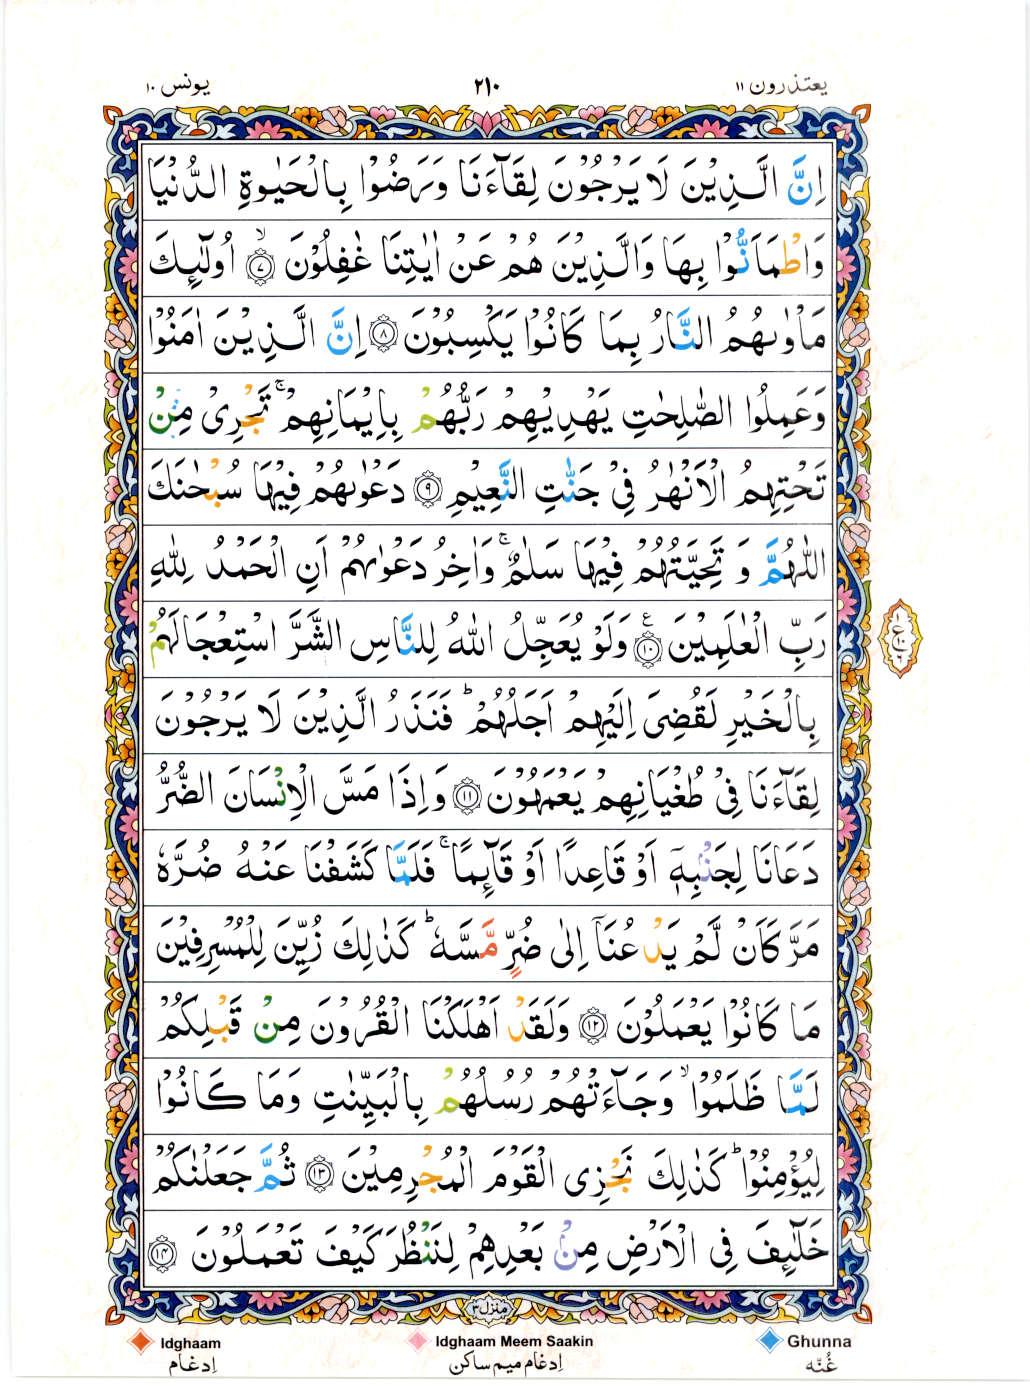 يعتذرون ١١
٢١٠
يونس ١٠
اِنَّ الَّذِيْنَ لَا يَرْجُوْنَ لِقَآءَنَا وَرَضُوْا بِالْحَيٰوةِ الدُّنْيَا
وَاطْمَاَنُّوْا بِهَا وَالَّذِيْنَ هُمْ عَنْ اٰيٰتِنَا غٰفِلُوْنَ ۙ﴿۷﴾ اُولٰٓئِكَ
مَاْوٰىهُمُ النَّارُ بِمَا كَانُوْا يَكْسِبُوْنَ ﴿۸﴾ اِنَّ الَّذِيْنَ اٰمَنُوْا
وَعَمِلُوا الصّٰلِحٰتِ يَهْدِيْهِمْ رَبُّهُمْ بِاِيْمَانِهِمْ ۚ تَجْرِىْ مِنْ
تَحْتِهِمُ الْاَنْهٰرُ فِىْ جَنّٰتِ النَّعِيْمِ ﴿۹﴾ دَعْوٰىهُمْ فِيْهَا سُبْحٰنَكَ
اللّٰهُمَّ وَ تَحِيَّتُهُمْ فِيْهَا سَلٰمٌ ۚ وَاٰخِرُ دَعْوٰىهُمْ اَنِ الْحَمْدُ لِلّٰهِ
رَبِّ الْعٰلَمِيْنَ ﴿۱۰﴾ ع وَلَوْ يُعَجِّلُ اللّٰهُ لِلنَّاسِ الشَّرَّ اسْتِعْجَالَهُمْ
بِالْخَيْرِ لَقُضِىَ اِلَيْهِمْ اَجَلُهُمْ ؕ فَنَذَرُ الَّذِيْنَ لَا يَرْجُوْنَ
لِقَآءَنَا فِىْ طُغْيَانِهِمْ يَعْمَهُوْنَ ﴿۱۱﴾ وَاِذَا مَسَّ الْاِنْسَانَ الضُّرُّ
دَعَانَا لِجَنْۢبِهٖۤ اَوْ قَاعِدًا اَوْ قَآئِمًا ۚ فَلَمَّا كَشَفْنَا عَنْهُ ضُرَّهٗ
مَرَّ كَاَنْ لَّمْ يَدْعُنَاۤ اِلٰى ضُرٍّ مَّسَّهٗ ؕ كَذٰلِكَ زُيِّنَ لِلْمُسْرِفِيْنَ
مَا كَانُوْا يَعْمَلُوْنَ ﴿۱۲﴾ وَلَقَدْ اَهْلَكْنَا الْقُرُوْنَ مِنْ قَبْلِكُمْ
لَمَّا ظَلَمُوْا ۙ وَجَآءَتْهُمْ رُسُلُهُمْ بِالْبَيِّنٰتِ وَمَا كَانُوْا
لِيُؤْمِنُوْا ؕ كَذٰلِكَ نَجْزِى الْقَوْمَ الْمُجْرِمِيْنَ ﴿۱۳﴾ ثُمَّ جَعَلْنٰكُمْ
خَلٰٓئِفَ فِى الْاَرْضِ مِنْۢ بَعْدِهِمْ لِنَنْظُرَ كَيْفَ تَعْمَلُوْنَ ﴿۱۴﴾
منزل ٣
Idghaam Idghaam Meem Saakin Ghunna
اِدغام اِدغام میم ساکن غُنّه